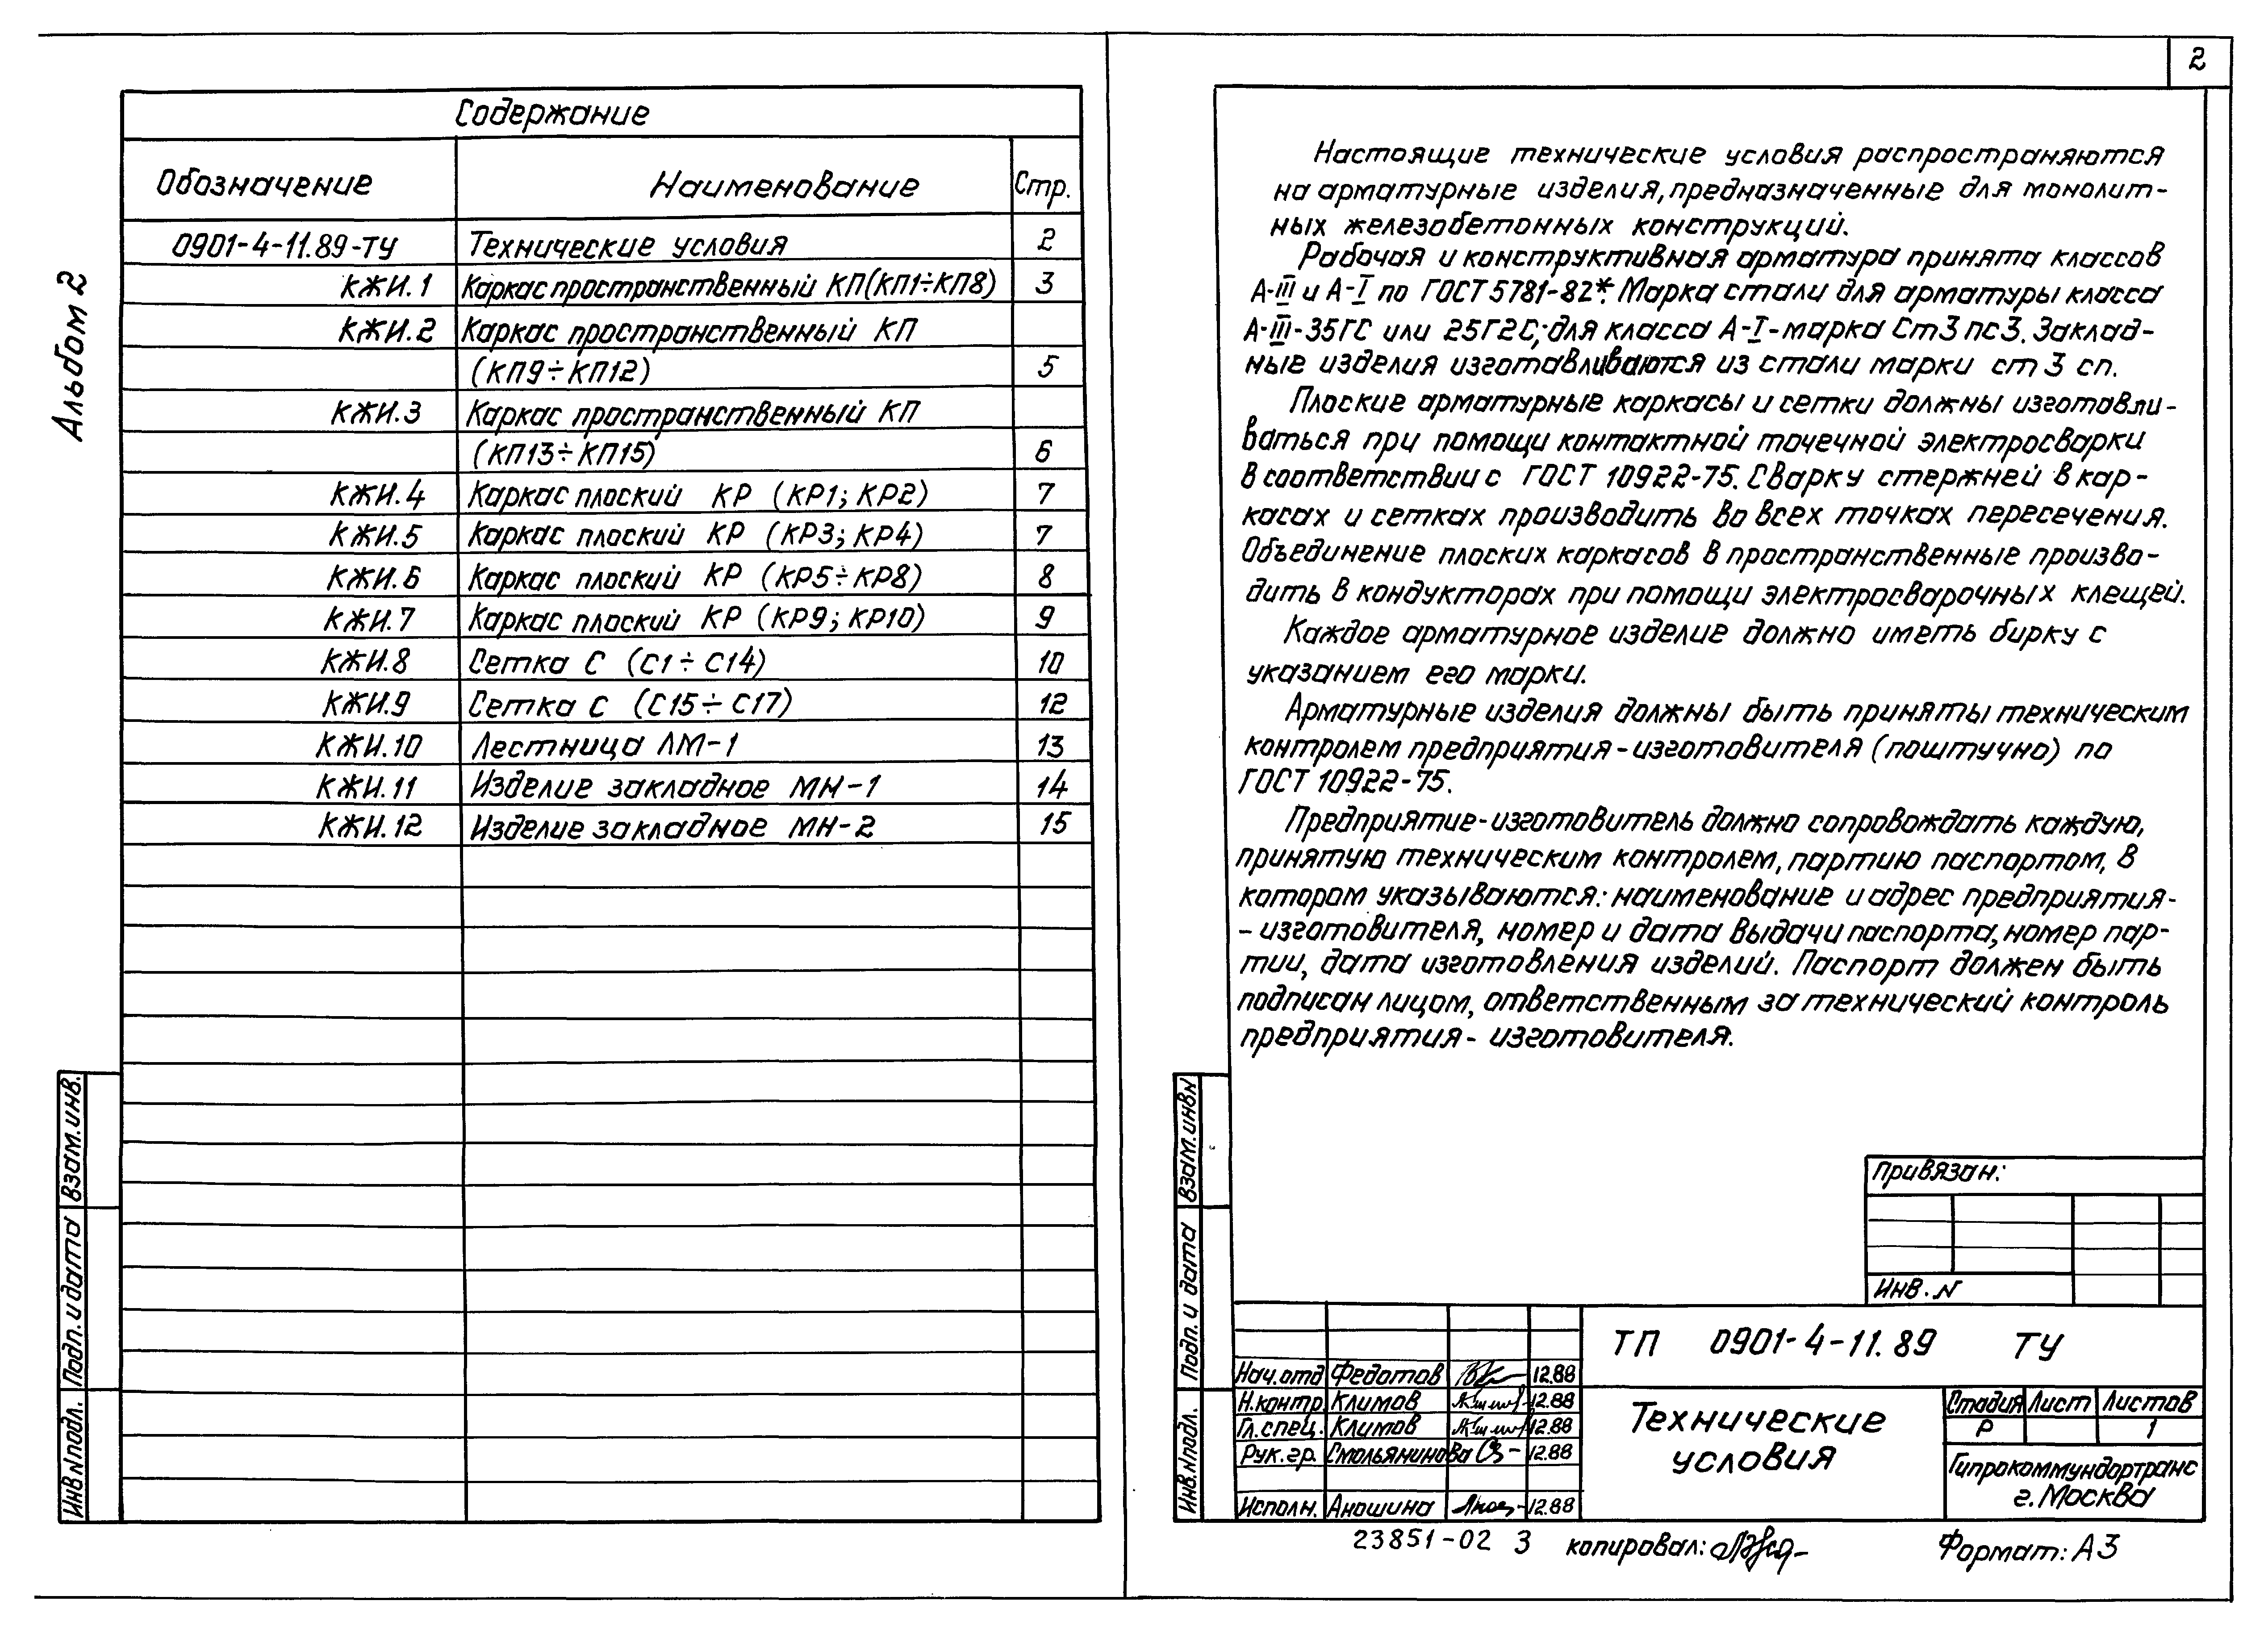 2
Альбом 2
Содержание
Обозначение Наименование Стр.
0901-4-11.89-ТУ Технические условия 2
КЖИ.1 Каркас пространственный КП(КП1÷КП8) 3
КЖИ.2 Каркас пространственный КП
(КП9÷КП12) 5
КЖИ.3 Каркас пространственный КП
(КП13÷КП15) 6
КЖИ.4 Каркас плоский КР (КР1; КР2) 7
КЖИ.5 Каркас плоский КР (КР3; КР4) 7
КЖИ.6 Каркас плоский КР (КР5÷КР8) 8
КЖИ.7 Каркас плоский КР (КР9; КР10) 9
КЖИ.8 Сетка С (С1÷С14) 10
КЖИ.9 Сетка С (С15÷С17) 12
КЖИ.10 Лестница ЛМ-1 13
КЖИ.11 Изделие закладное МН-1 14
КЖИ.12 Изделие закладное МН-2 15
Взам.инв.
Подп. и дата
Инв N подл.
Настоящие технические условия распространяются
на арматурные изделия, предназначенные для монолит-
ных железобетонных конструкций.
Рабочая и конструктивная арматура принята классов
А-III и А-I по ГОСТ 5781-82*. Марка стали для арматуры класса
А-III-35ГС или 25Г2С; для класса А-I-марка Ст3пс3. Заклад-
ные изделия изготавливаются из стали марки ст 3 сп.
Плоские арматурные каркасы и сетки должны изготавли-
ваться при помощи контактной точечной электросварки
в соответствии с ГОСТ 10922-75. Сварку стержней в кар-
касах и сетках производить во всех точках пересечения.
Объединение плоских каркасов в пространственные произво-
дить в кондукторах при помощи электросварочных клещей.
Каждое арматурное изделие должно иметь бирку с
указанием его марки.
Арматурные изделия должны быть приняты техническим
контролем предприятия-изготовителя (поштучно) по
ГОСТ 10922-75.
Предприятие-изготовитель должно сопровождать каждую,
принятую техническим контролем, партию паспортом, в
котором указываются: наименование и адрес предприятия-
-изготовителя, номер и дата выдачи паспорта, номер пар-
тии, дата изготовления изделий. Паспорт должен быть
подписан лицом, ответственным за технический контроль
предприятия- изготовителя.
Взам.инв N
Подп. и дата
Инв.N подл.
Привязан:
Инв. N
ТП 0901-4-11.89 ТУ
Нач.отд Федотов 12.88
Н.контр. Климов 12.88
Гл.спец. Климов 12.88
Рук.гр. Смольянинова 12.88
Исполн. Аношина 12.88
Технические
условия
Стадия Лист Листов
Р 1
Гипрокоммундортранс
г. Москва
23851-02 3 копировал: Формат: А3